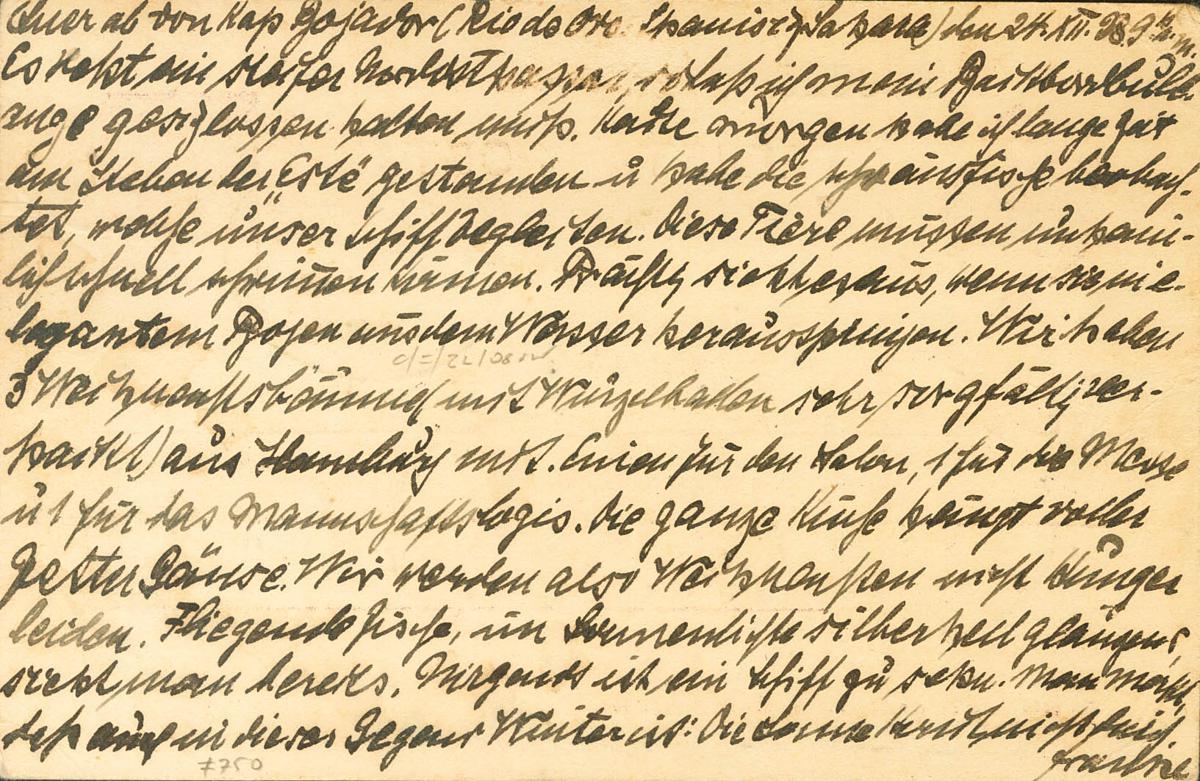 Quer ab von Kap Bojador (Rio de Oro. Spanisch Sahara) den 24. XII. 9h m.
Es weht ein steifer Nordostpassat, so daß ich mein Backbordbull-
auge geschlossen halten muß. Heute morgen habe ich lange Zeit
am Steben der "Este" gestanden u habe die fische beobach-
tet, welche unser Schiff begleiten. Diese Tiere müssen unheim-
lich schnell schwimmen können. Prächtig sieht es aus, wenn sie in e-
legantem Bogen aus dem Wasser herausspringen. Wir haben
3 Weihnachtsbäume (mit Wurzelballen sehr sorgfältig ver-
packt) aus Hamburg mit. Einen für den Salon, 1 für die Messe
u 1 für das Mannschaftslogis. Die ganze Küche hängt voller
fetter Gänse. Wir werden also Weihnachten nicht Hunger
leiden. Fliegende Fische, im Sonnenlichte silberhell glänzend,
sieht man bereits. Nirgends ist ein Schiff zu sehn. Man merkt,
daß auch in dieser Gegend Winter ist: Die Sonne nicht
7750